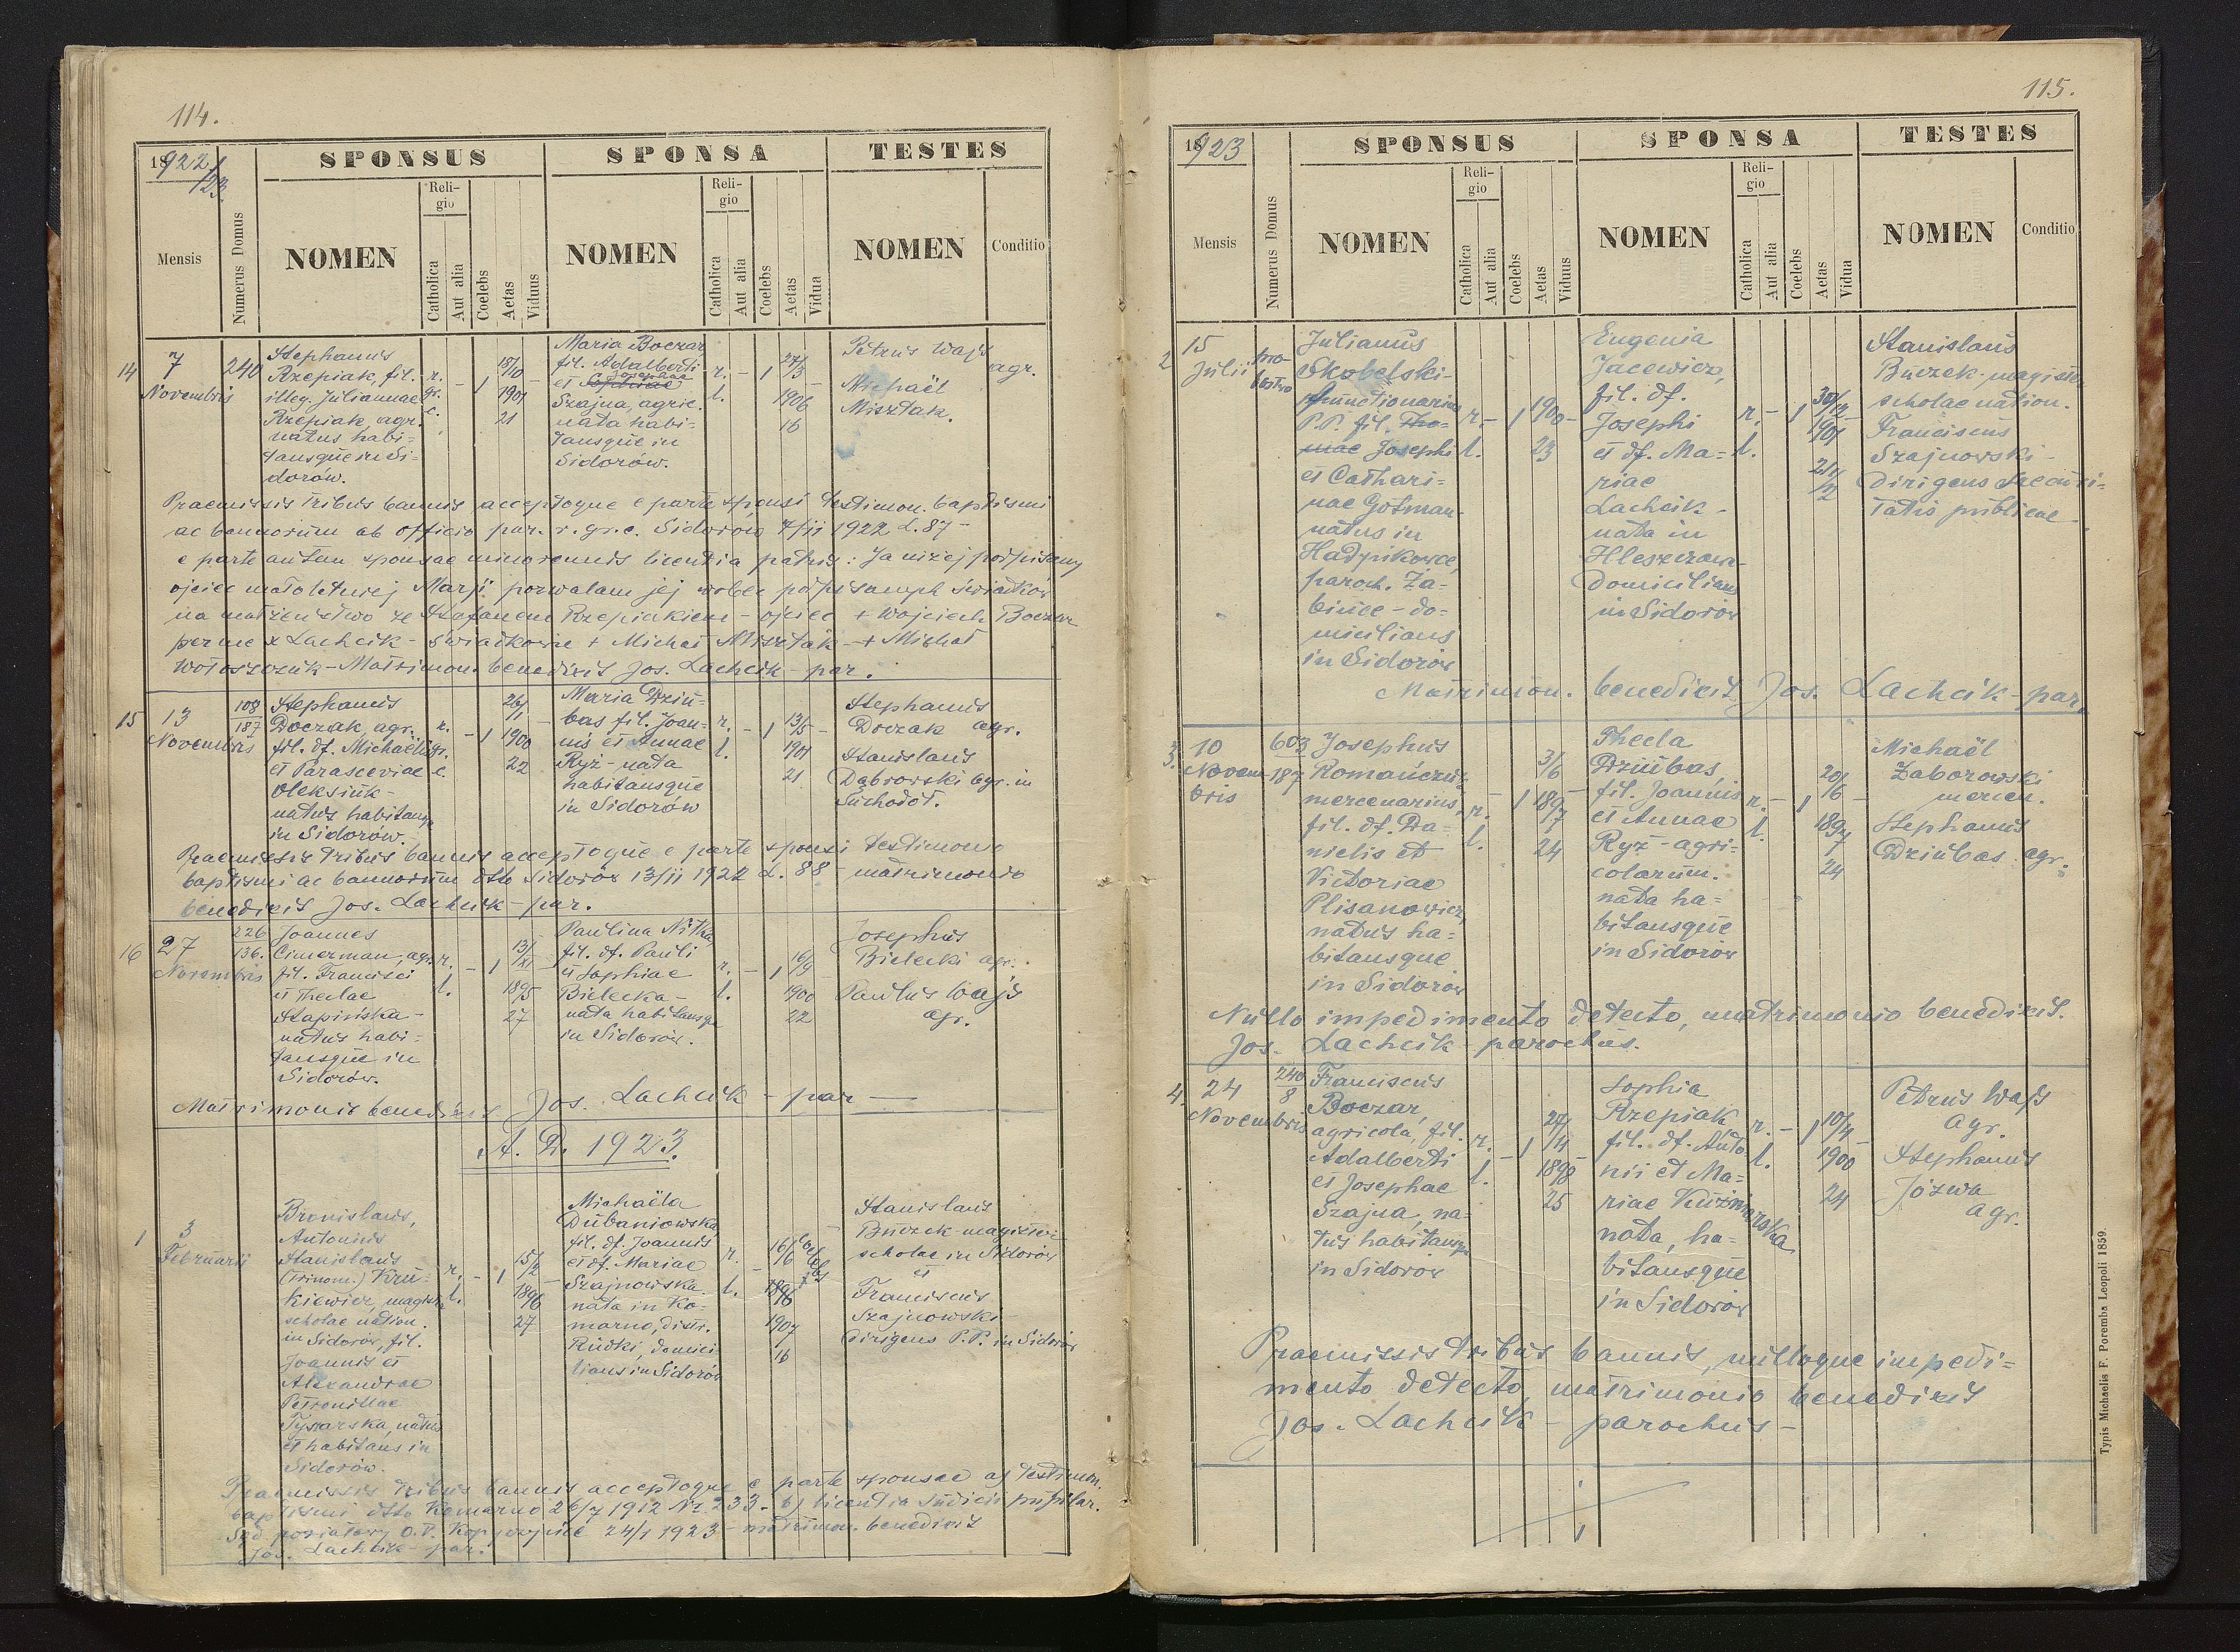 114.
1922/
123.
SPONSUS
SPONSA
TESTES
Mensis
Numerus Domus
NOMEN
Religio
Catholica
Aut alia
Coelebs
Aetas
Viduus
NOMEN
Religio
Catholica
Aut alia
Coelebs
Aetas
Vidua
NOMEN
Conditio
14
7
Novembris
240
Stephanus
Rzepiak, fil.
illeg. Juliannae
Rzepiak, agr.
natus habi=
tansque in Si-
dorów.
r.
gr.
c.
-
1
18/10
1901
21
Maria Boczar
fil. Adalberti
et Josephae
Szajna, agric.
nata habi=
tansque in
Sidorów.
r.
l.
-
1
27/3
1906
16
-
Petrus Wajs
agr.
Michaël
Misztak.
Praemissis tribus bannis acceptoque e parte sponsi testimon. baptismi
ac bannorum ab officio par. r. gr. c. Sidorów 7/11 1922 L. 87 -
e parte autem sponsae minorennis licentia patris: Ja niżej podpisany
ojciec małoletniej Marji pozwalam jej wobec podpisanych świadków
na małżeństwo ze Stefanem Rzepiakiem - ojciec + Wojciech Boczar
per me x Lachcik - świadkowie + Michał Misztak - + Michał
Wołoszczuk - Matrimon. benedixit Jos. Lachcik - par.
15
13
Novembris
108
187
Stephanus
Doczak, agr.
fil. df. Michaëlis
et Parasceviae
Oleksiuk -
natus habitansq.
in Sidorów.
r.
gr.
c.
-
1
26/1
1900
22
-
Maria Dziu=
bas fil. Joan=
nis et Annae
Ryż - nata
habitansque
in Sidorów
r.
l.
-
1
13/5
1901
21
-
Stephanus
Doczak agr.
Stanislaus
Dąbrowski agr. in
Suchodół.
Praemissis tribus bannis acceptoque e parte sponsi testimonio
baptismi ac bannorum dtto Sidorów 13/11 1922 L. 88 - matrimonio
benedixit Jos. Lachcik - par.
16
27
Novembris
226
136.
Joannes
Cimerman, agr.
fil. Francisci
et Theclae
Stapińska -
natus habi=
tansque in
Sidorów.
r.
l.
-
1
13/XI
1895
27
-
Paulina Nitka,
fil. df. Pauli
et Sophiae
Bielecka -
nata habitansque
in Sidorów.
r.
l.
-
1
16/9
1900
22
Josephus
Bielecki agr.
Paulus Wajs
agr.
Matrimonio benedixit Jos. Lachcik - par -
A. D. 1923.
1
3
Februarii
Bronislaus,
Antonius
Stanislaus
(trinom.) Kru=
kiewicz, magister
scholae nation.
in Sidorów, fil.
Joannis et
Alexandrae
Petronillae
Pysarska, natus
et habitans in
Sidorów.
r.
l.
-
1
15/2
1896
27
-
Michaëla
Dubaniowska,
fil. df. Joannis
et df. Mariae
Szajnowska.
nata in Ko-
marno, distr.
Rudki, domici
lians in Sidorów
r.
l.
-
16/6
1907
16
coelebs
Stanislaus
Buczek magister
scholae in Sidorów
et
Franciscus
Szajnowski -
dirigens P.P. in Sidorów
Praemissis tribus bannis acceptoque e parte sponsae a) testimon.
baptismi dtto Komarno 26/7 1912 Nr 233 - b) licentia judicii pupilar.
Sąd powiatowy O.V. Kopyczyńce 24/1 1923 - matrimon. benedixit
Jos. Lachcik - par.
115.
1923
SPONSUS
SPONSA
TESTES
Mensis
Numerus Domus
NOMEN
Religio
Catholica
Aut alia
Coelebs
Aetas
Viduus
NOMEN
Religio
Catholica
Aut alia
Coelebs
Aetas
Vidua
NOMEN
Conditio
2
15
Julii
Julianus
Skobelski -
functionarius
P.P. fil. Tho=
mae Josephi
et Cathari=
nae Gotman -
natus in
Hadyńkowce,
paroch. Ża=
bińce - do=
micilians
in Sidorów
r.
l.
-
1
1900
23
-
Eugenia
Jacewicz,
fil. df.
Josephi
et df. Ma=
riae
Lachcik -
nata in
Hleszczawa -
domicilians
in Sidorów
r.
l.
-
1
30/12
1901
21 1/2
Stanislaus
Buczek - magister
scholae nation.
Franciscus
Szajnowski -
dirigens securi=
tatis publicae -
Matrimon. benedixit Jos. Lachcik - par.
3.
10
Novem
bris
603
187
Josephus
Romańczuk
mercenarius,
fil. df. Da=
nielis et
Victoriae
Plisanowicz,
natus ha=
bitansque
in Sidorów
r.
l.
-
1
3/6
1897
24
Thecla
Dziubas,
fil. Joannis
et Annae
Ryż - agri=
colarum.
nata ha=
bitansque
in Sidorów
r.
l.
-
1
20/6
1897
24
-
Michaël
Zaborowski
mercen.
Stephanus
Dziubas agr.
Nullo impedimento detecto, matrimonio benedixit.
Jos. Lachcik - parochus.
4.
24
Novembris
240
8
Franciscus
Boczar,
agricola, fil.
Adalberti
et Josephae
Szajna, na=
tus habitansq.
in Sidorów
r.
l.
-
1
27/4
1898
25
Sophia
Rzepiak,
fil. df. Anto
nii et Ma=
riae Kuźniarska
nata, ha=
bitansque
in Sidorów
r.
l.
-
1
10/4
1900
24
-
Petrus Wajs
agr.
Stephanus
Józwa
agr.
Praemissis tribus bannis, nulloque impedi=
mento detecto, matrimonio benedixit
Jos. Lachcik - parochus -
Typis Michaelis F. Poremba Leopoli 1859.